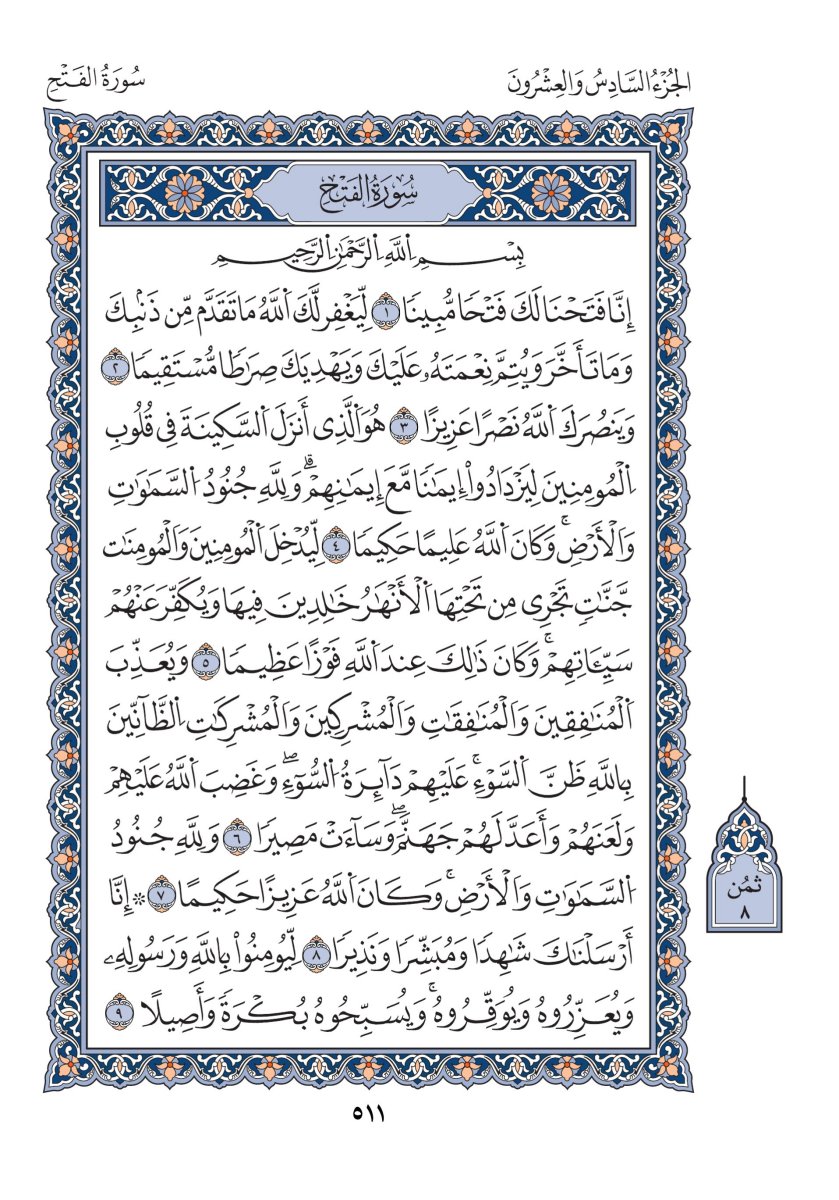 الجُزْءُ السَّادِسُ وَالعِشْرُونَ
سُورَةُ الفَتْحِ
سُورَةُ الفَتْحِ
بِسْمِ اِللَّهِ اِلرَّحْمَٰنِ اِلرَّحِيمِ
إِنَّا فَتَحْنَا لَكَ فَتْحًا مُّبِينًا ١ لِّيَغْفِر لَّكَ اَللَّهُ مَا تَقَدَّم مِّن ذَنۢبِكَ
وَمَا تَأَخَّرَ وَيُتِمَّ نِعْمَتَهُۥ عَلَيْكَ وَيَهْدِيَكَ صِرَٰطًا مُّسْتَقِيمًا ٢
وَيَنصُرَكَ اَللَّهُ نَصْرًا عَزِيزًا ٣ هُوَ اَلَّذِى أَنزَلَ اَلسَّكِينَةَ فِى قُلُوبِ
اِلْمُومِنِينَ لِيَزْدَادُوٓاْ إِيمَٰنًا مَّعَ إِيمَٰنِهِمْۗ وَلِلَّهِ جُنُودُ اُلسَّمَٰوَٰتِ
وَاَلْأَرْضِۚ وَكَانَ اَللَّهُ عَلِيمًا حَكِيمًا ٤ لِّيُدْخِلَ اَلْمُومِنِينَ وَاَلْمُومِنَٰت
جَّنَّٰتٍ تَجْرِى مِن تَحْتِهَا اَلْأَنْهَٰرُ خَٰلِدِينَ فِيهَا وَيُكَفِّرَ عَنْهُمْ
سَيِّـَٔاتِهِمْۚ وَكَانَ ذَٰلِكَ عِندَ اَللَّهِ فَوْزًا عَظِيمًا ٥ وَيُعَذِّبَ
اَلْمُنَٰفِقِينَ وَاَلْمُنَٰفِقَٰتِ وَاَلْمُشْرِكِينَ وَاَلْمُشْرِكَٰتِ اِلظَّآنِّينَ
بِاللَّهِ ظَنَّ اَلسَّوْءِۚ عَلَيْهِمْ دَآئِرَةُ اُلسُّوٓءِۖ وَغَضِبَ اَللَّهُ عَلَيْهِمْ
وَلَعَنَهُمْ وَأَعَدَّ لَهُمْ جَهَنَّمَۖ وَسَآءَتْ مَصِيرًا ٦ وَلِلَّهِ جُنُودُ
اُلسَّمَٰوَٰتِ وَاَلْأَرْضِۚ وَكَانَ اَللَّهُ عَزِيزًا حَكِيمًا ٧ ۞ إِنَّآ
أَرْسَلْنَٰكَ شَٰهِدًا وَمُبَشِّرًا وَنَذِيرًا ٨ لِّيُومِنُواْ بِاللَّهِ وَرَسُولِهِۦ
وَيُعَزِّرُوهُ وَيُوَقِّرُوهُۚ وَيُسَبِّحُوهُ بُكْرَةً وَأَصِيلًا ٩
ثُمُن
٨
٥١١